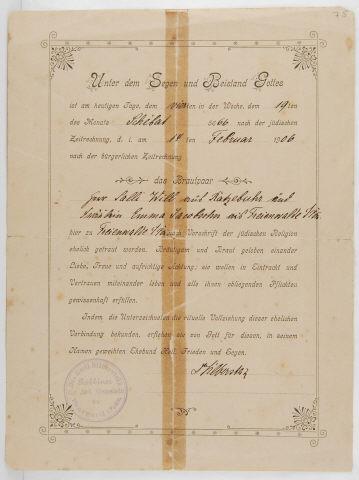 75
Unter dem Segen und Beistand Gottes
ist am heutigen Tage, dem vierten in der Woche, dem 19ten
des Monats Schebat 5666 nach der jüdischen
Zeitrechnung, d. i. am 14 ten Februar 1906
nach der bürgerlichen Zeitrechnung
das Brautpaar
Herr Salli Wille aus Ratzebuhr und
Fräulein Emma Jacobsohn aus Freienwalde i/Pom
hier zu Freienwalde i/Pom nach Vorschrift der jüdischen Religion
ehelich getraut worden. Bräutigam und Braut geloben einander
Liebe, Treue und aufrichtige Achtung; sie wollen in Eintracht und
Vertrauen miteinander leben und alle ihnen obliegenden Pflichten
gewissenhaft erfüllen.
Indem die Unterzeichneten die rituelle Vollziehung dieser ehelichen
Verbindung bekunden, erflehen sie von Gott für diesen, in seinem
Namen geweihten Ehebund Heil, Frieden und Segen.
Dr Silberstein
Rabbiner